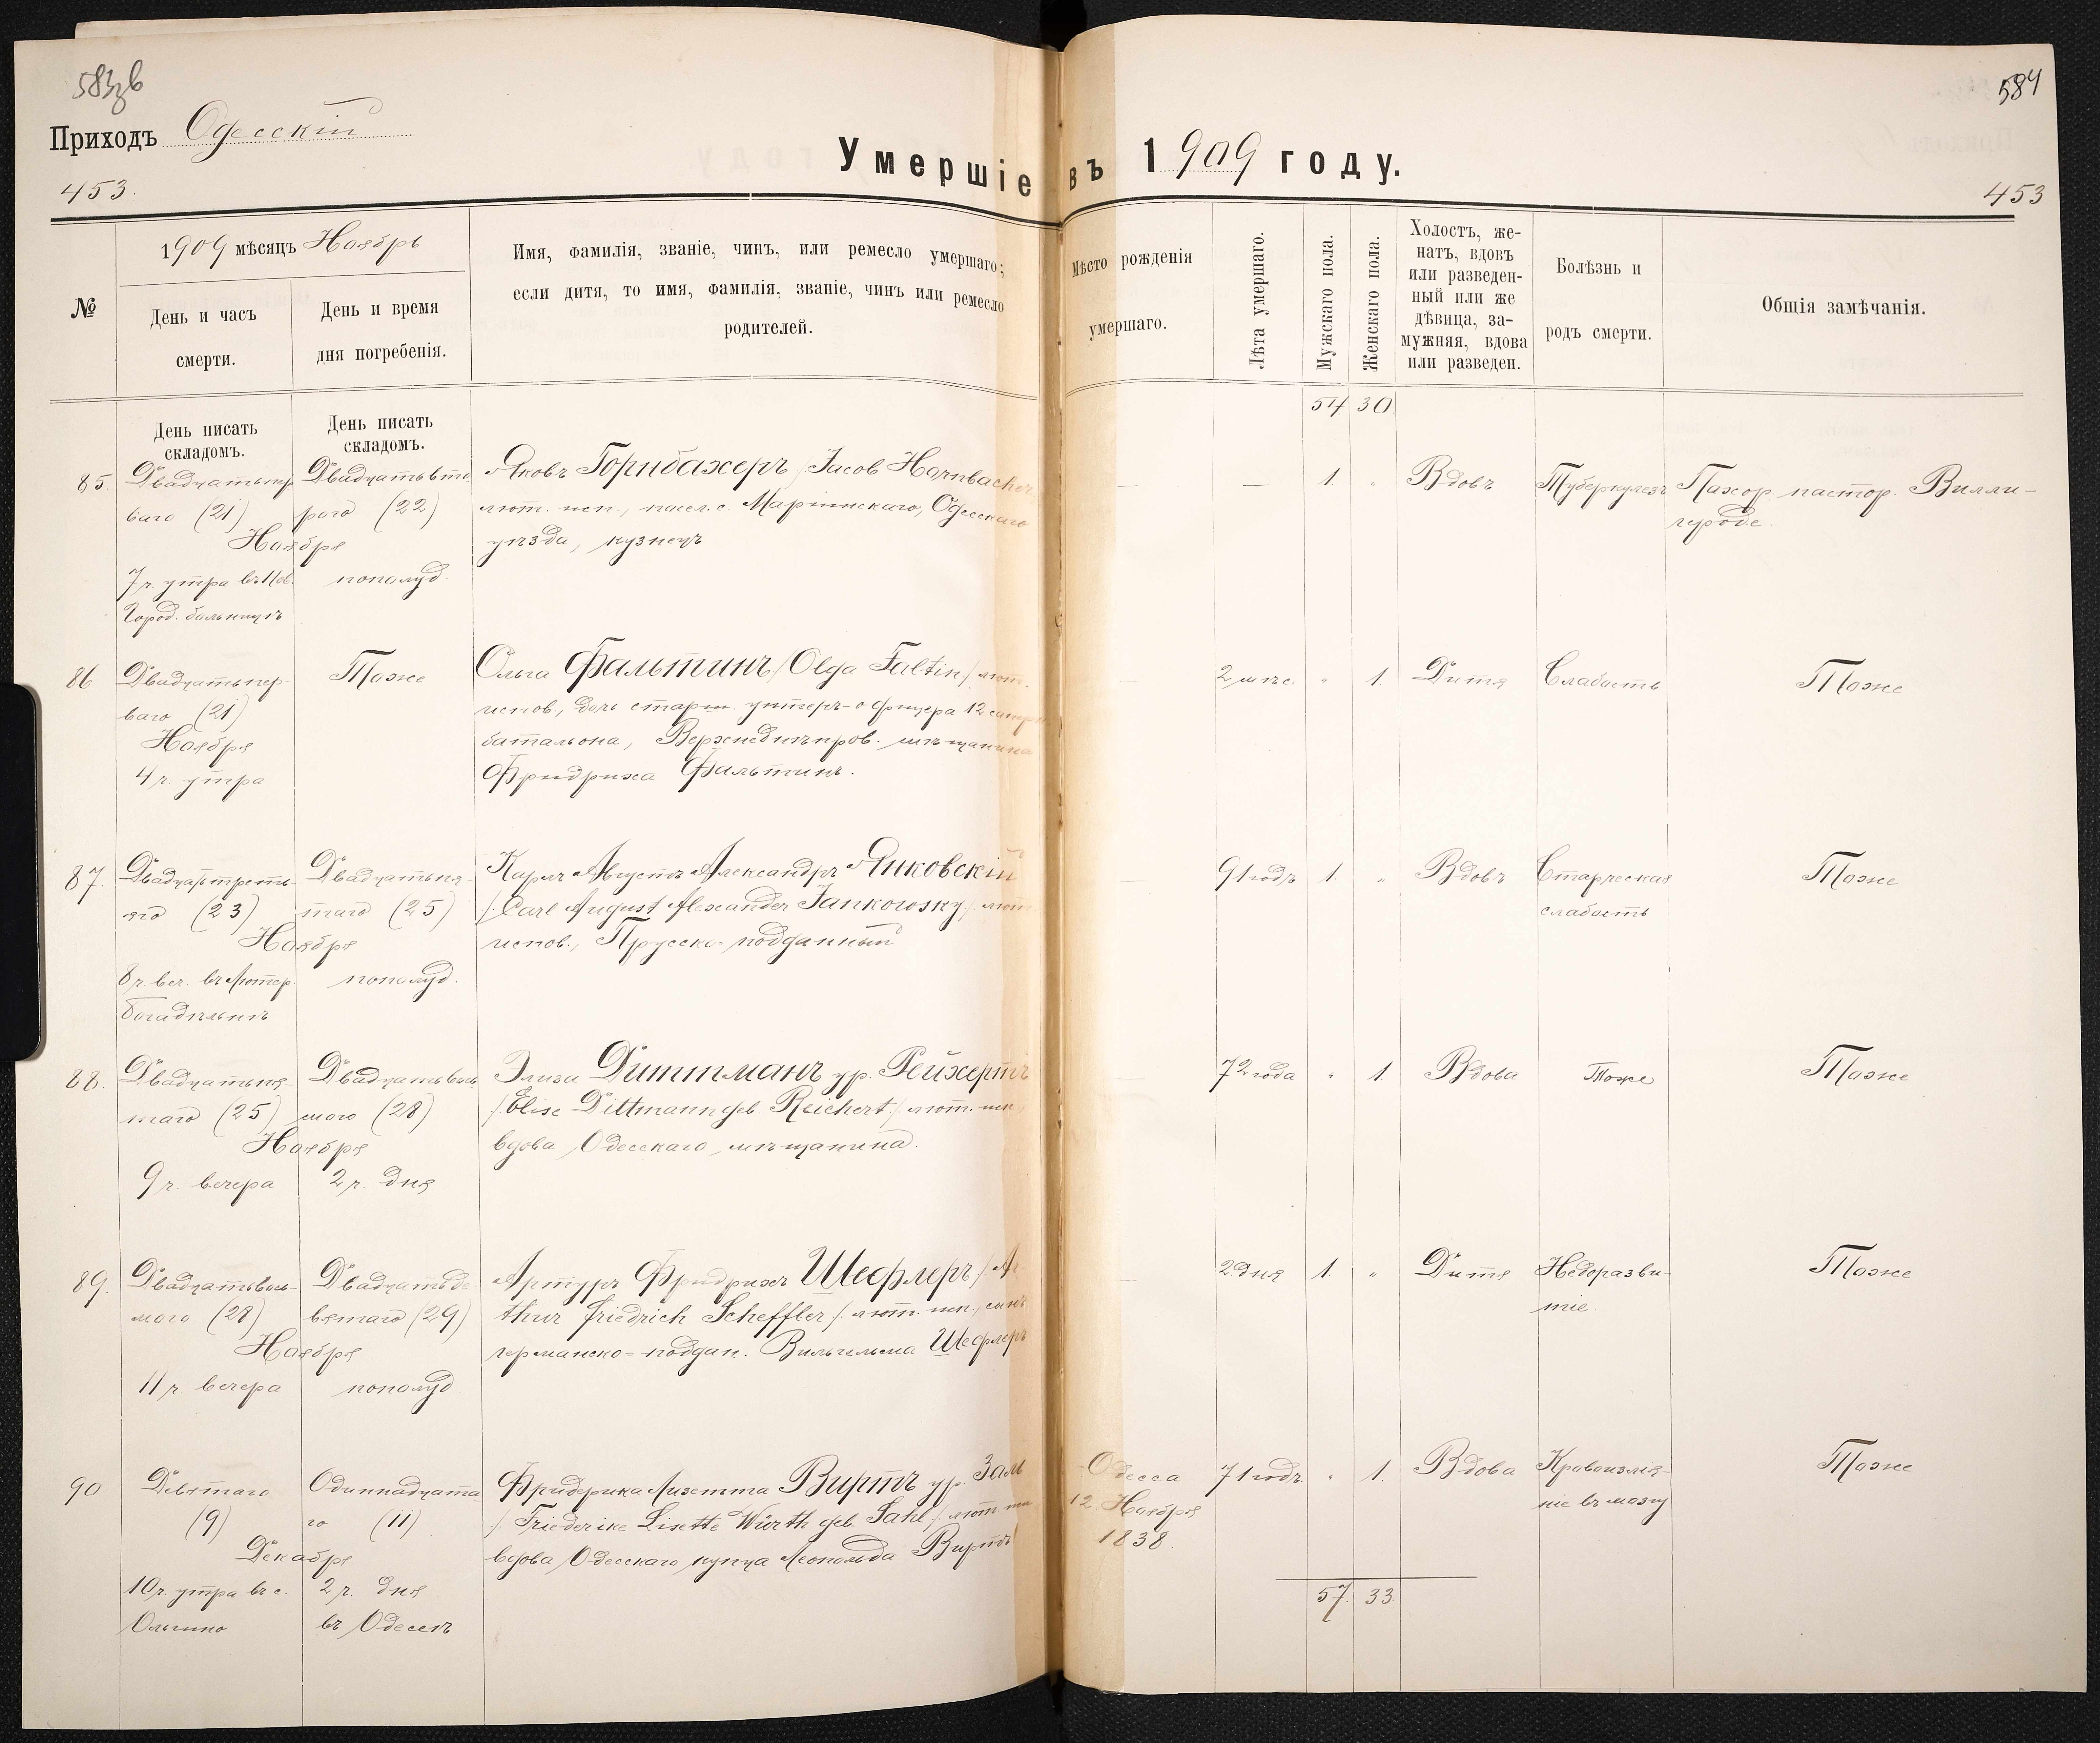 583об
584
Приходъ Одесскій
Умершіе въ 1909 году.
453.
453
№
1909 мѣсяцъ Ноябрь
День и часъ
смерти.
День и время
дня погребенія.
Имя, фамилія, званіе, чинъ, или ремесло умершаго;
если дитя, то имя, фамилія, званіе, чинъ или ремесло
родителей.
Мѣсто рожденія
умершаго.
Лѣта умершаго.
Мужскаго пола.
Женскаго пола.
Холостъ, же-
натъ, вдовъ
или разведен-
ный или же
дѣвица, за-
мужняя, вдова
или разведен.
Болѣзнь и
родъ смерти.
Общія замѣчанія.
День писать
складомъ.
День писать
складомъ.
54 30
85.
Двадцатьпер
ваго (21)
Ноября
7 ч. утра въ Нов.
Город. больницѣ
Двадцатьвто
рого (22)
пополуд.
Яковъ Горнбахеръ /Jacob Hornbacher
лют. исп., посел. с. Маріинскаго, Одесскаго
уѣзда, кузнецъ
— — 1. " Вдовъ Туберкулезъ Похор. пастор. Вилли-
героде.
86
Двадцатьпер-
ваго (21)
Ноября
4 ч. утра
Тоже
Ольга Фальтинъ /Olga Faltin/ лют.
испов., дочь старш. унтеръ-офицера 12 сапер
батальона, Верхнеднѣпров. мѣщанина
Фридриха Фальтинъ.
— 2 мѣс. " 1. Дитя Слабость Тоже
87.
Двадцатьтреть-
яго (23)
Ноября
8 ч. веч. въ Лютер.
Богадѣльнѣ
Двадцатьпя-
таго (25)
пополуд.
Карлъ Августъ Александръ Янковскій
/Carl August Alexander Jankowsky/. лют
испов., Прусско-подданный
— 91 годъ 1. " Вдовъ Старческая
слабость
Тоже
88.
Двадцатьпя-
таго (25)
Ноября
9 ч. вечера
Двадцатьвось
мого (28)
2 ч. дня
Элиза Диттманъ ур. Рейхертъ
/Elise Dittmann geb. Reichert/. лют. исп.,
вдова Одесскаго мѣщанина.
— 72 года " 1. Вдова Тоже Тоже
89.
Двадцатьвось-
мого (28)
Ноября
11 ч. вечера
Двадцатьде-
вятаго (29)
пополуд
Артуръ Фридрихъ Шефлеръ /Ar
thur Friedrich Scheffler/. лют. исп., сынъ
германско-поддан. Вильгельма Шефлеръ
— 2 дня 1. " Дитя Недоразви-
тіе.
Тоже
90
Девятаго
(9)
Декабря
10 ч. утра въ с.
Ольгино
Одиннадцата
го (11)
2 ч. дня
въ Одессѣ
Фридерика Лизетта Виртъ ур. Заль
/Friederike Lisette Würth geb. Sahl/. лют. исп
вдова Одесскаго купца Леопольда Виртъ
Одесса
12. Ноября
1838.
71 годъ. " 1. Вдова Кровоизлія-
ніе въ мозгу
Тоже
57. 33.